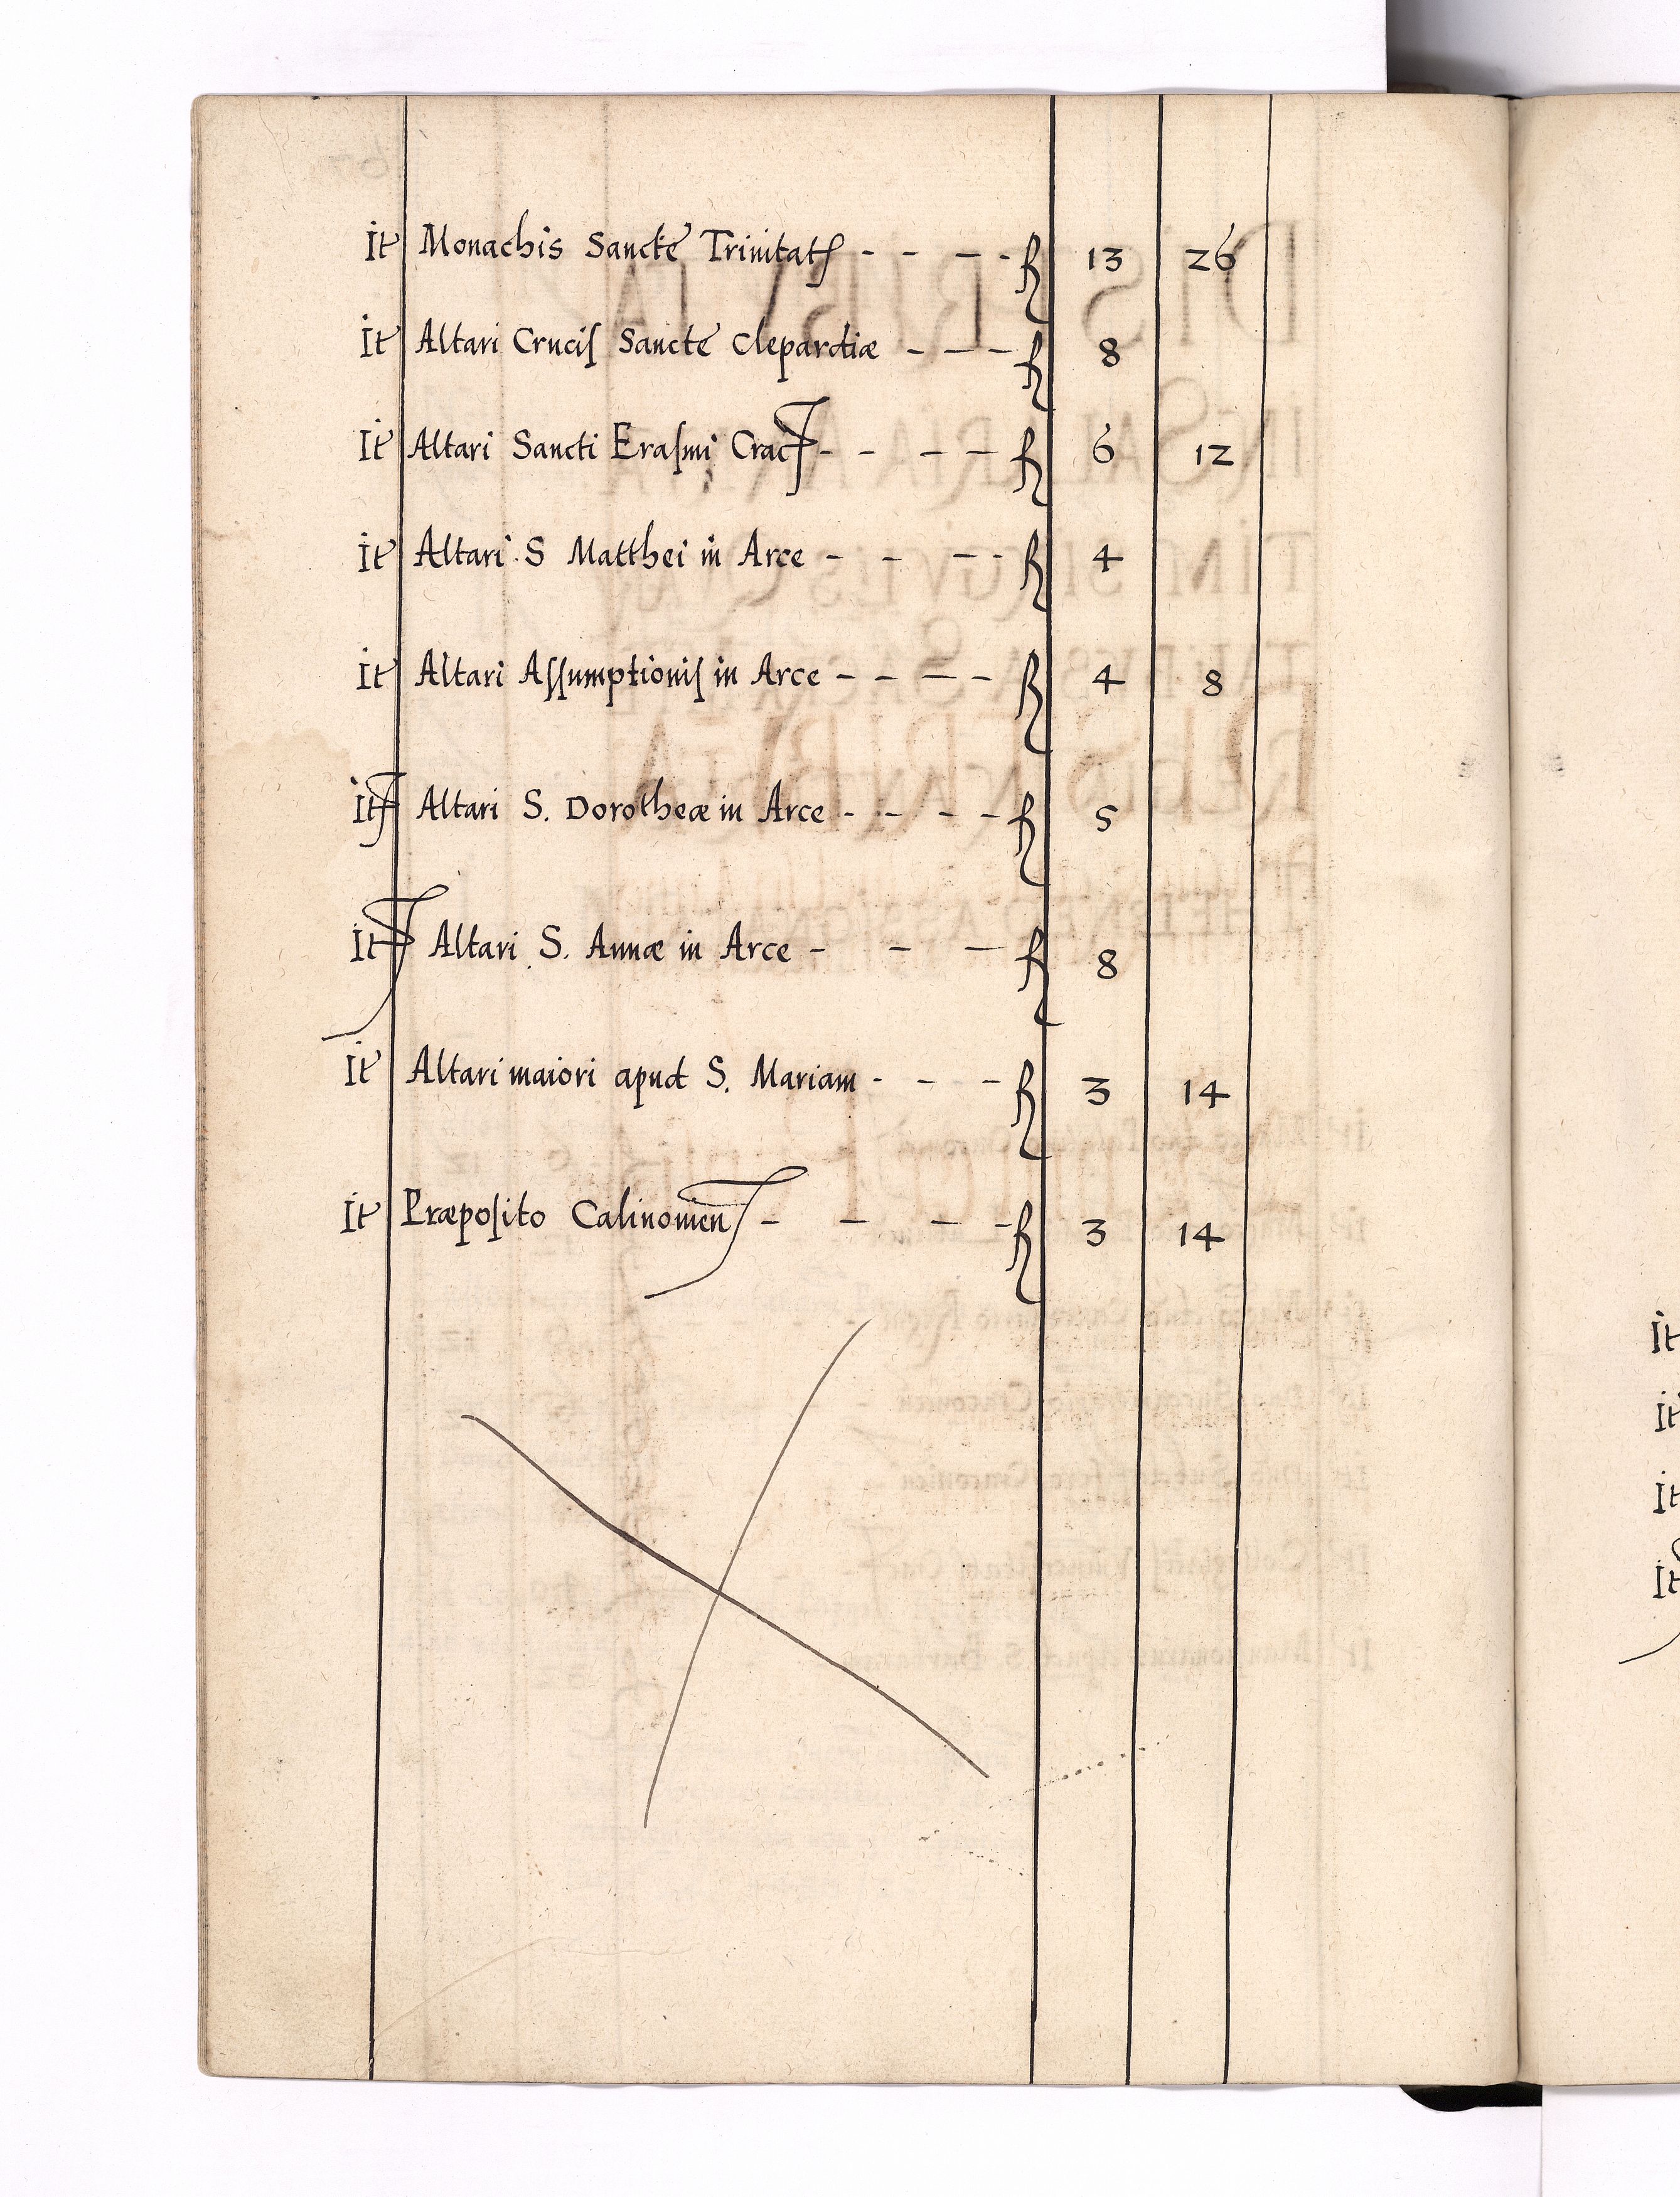 It Monachis Sancte Trinitatꝭ - - - - fl 13 26
It Altari Cruciſ Sancte Clepardiæ - - - fl 8
It Altari Sancti Eraſmi Crac - - - - fl 6 12
It Altari S Matthei in Arce - - - - fl 4
It Altari Aſſumptioniſ in Arce - - - - fl 4 8
It Altari S. Dorotheæ in Arce - - - - fl 5
It Altari S. Annæ in Arce - - - fl 8
It Altari maiori apud S. Mariam - - - fl 3 14
It Præpoſito Calinonien - - - - fl 3 14
It
It
It
It